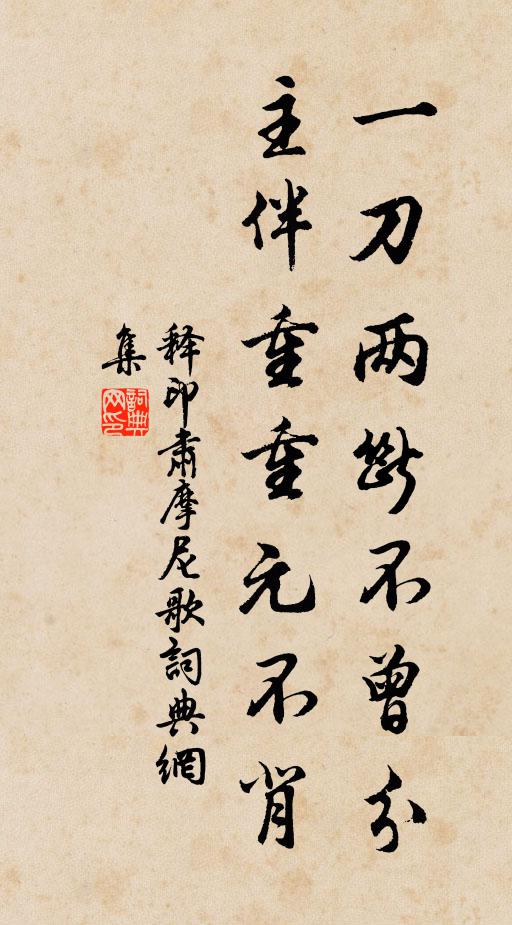 一刀两断不曾分
主伴重重元不肖
释印肃摩尼歌詞典網
集
詞典网印